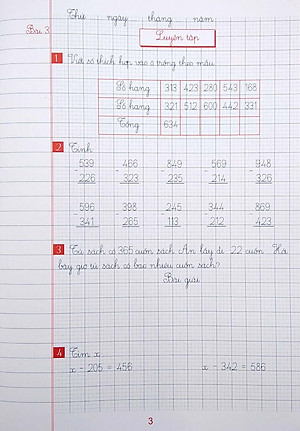 Thứ ngày tháng năm
Bài 3
Luyện tập
1 Viết số thích hợp vào ô trống theo mẫu
Số hạng 313 423 280 543 168
Số hạng 321 512 600 442 331
Tổng 634
2 Tính
539 466 849 569 948
- 226 - 323 - 235 - 214 - 326
596 398 245 344 869
- 341 - 265 - 113 - 212 - 423
3 Tủ sách có 365 cuốn sách An lấy đi 22 cuốn Hỏi
bây giờ tủ sách có bao nhiêu cuốn sách?
Bài giải
4 Tìm x
x - 205 = 456 x - 342 = 586
3